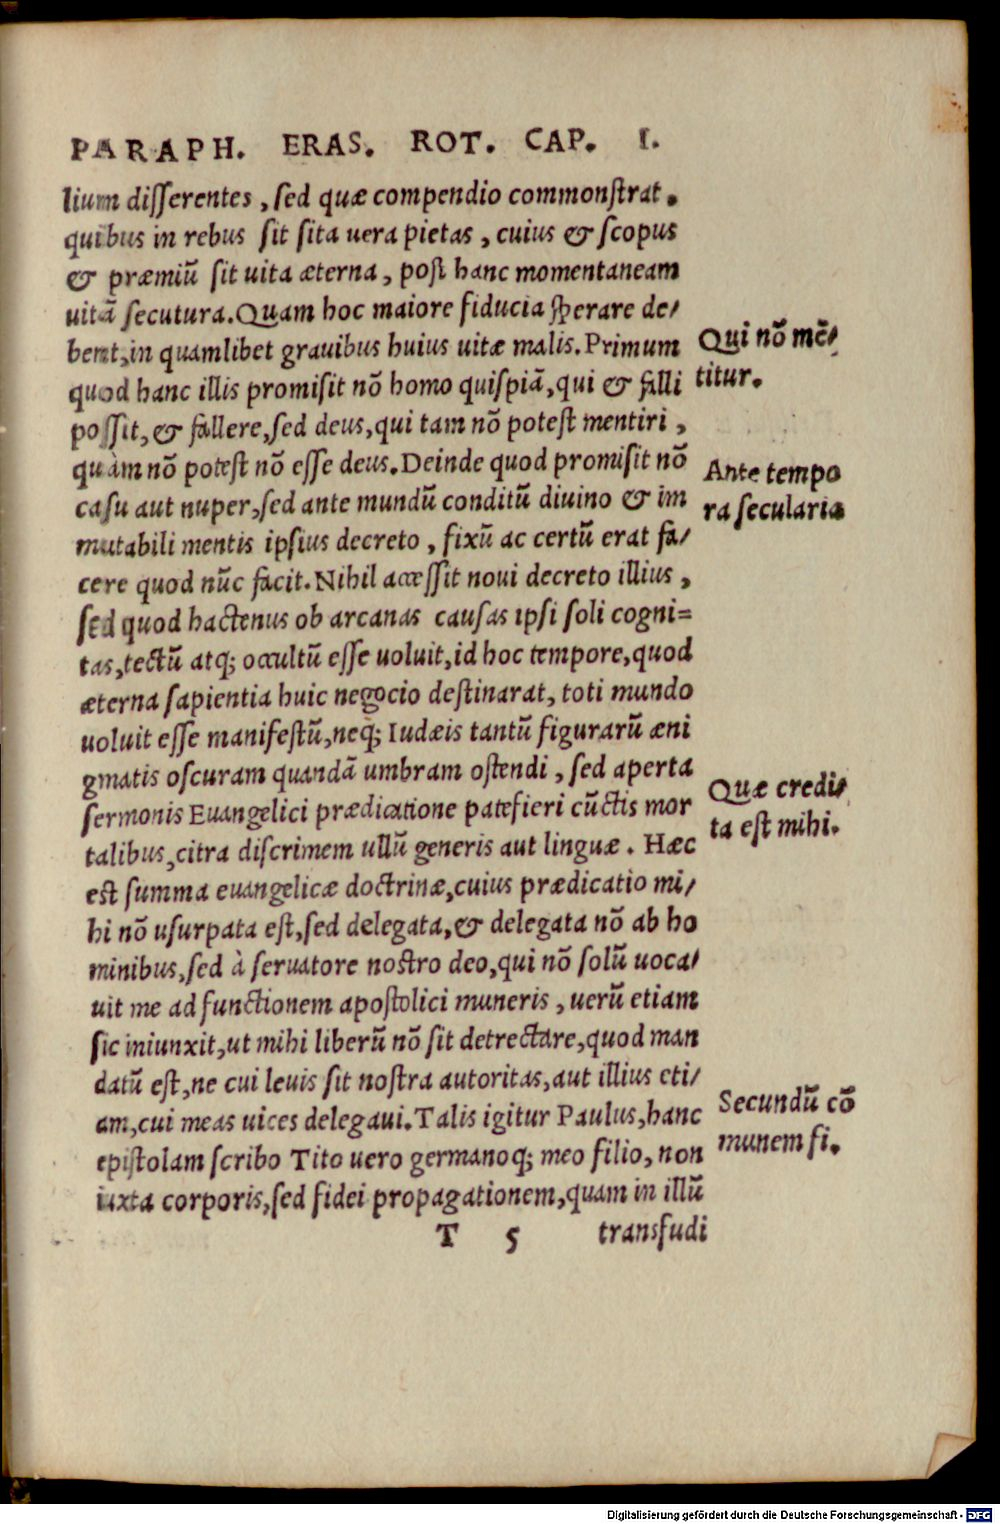 PARAPH. ERAS. ROT. CAP. I.
lium disserentes, sed quæ compendio commonstrat.
quibus in rebus sit sita uera pietas, cuius & scopus
& præmiũ sit uita æterna, post hanc momentaneam
uitã secutura. Quam hoc maiore fiducia sperare de/
bent, in quamlibet grauibus huius uitæ malis. Primum
quod hanc illis promisit nõ homo quispiã, qui & falli
possit, & fallere, sed deus, qui tam nõ potest mentiri,
quàm nõ potest nõ esse deus. Deinde quod promisit nõ
casu aut nuper, sed ante mundũ conditũ diuino & im
mutabili mentis ipsius decreto, fixũ ac certũ erat fa/
cere quod nũc facit. Nihil accessit noui decreto illius,
sed quod hactenus ob arcanas causas ipsi soli cogni=
tas, tectũ atq; occultũ esse uoluit, id hoc tempore, quod
æterna sapientia huic negocio destinarat, toti mundo
uoluit esse manifestũ, neq; Iudæis tantũ figurarũ æni
gmatis oscuram quandã umbram ostendi, sed aperta
sermonis Euangelici prædicatione patefieri cũctis mor
talibus, citra discrimem ullũ generis aut linguæ. Hæc
est summa euangelicæ doctrinæ, cuius prædicatio mi/
hi nõ usurpata est, sed delegata, & delegata nõ ab ho
minibus, sed à seruatore nostro deo, qui nõ solũ uoca/
uit me ad functionem apostolici muneris, uerũ etiam
sic iniunxit, ut mihi liberũ nõ sit detrectare, quod man
datũ est, ne cui leuis sit nostra autoritas, aut illius eti/
am, cui meas uices delegaui. Talis igitur Paulus, hanc
epistolam scribo Tito uero germanoq; meo filio, non
iuxta corporis, sed fidei propagationem, quam in illũ
T 5 transfudi
Qui nõ mẽ/
titur.
Ante tempo
ra secularia
Quæ credi/
ta est mihi.
Secundũ cõ
munem fi.
Digitalisierung gefördert durch die Deutsche Forschungsgemeinschaft - DFG